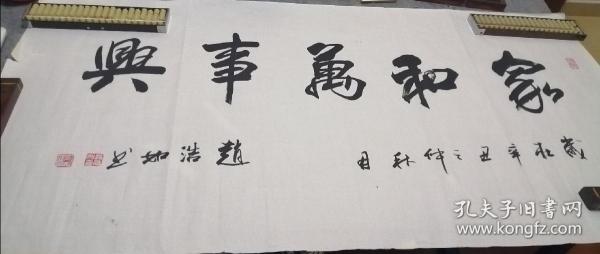 家和萬事興
歲在辛丑之仲秋月
趙浩如書
孔夫子旧书网
www.kongfz.com